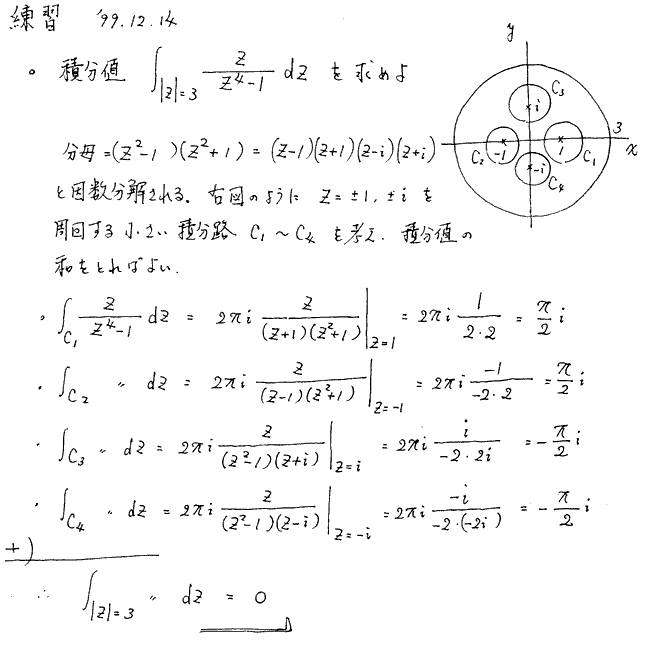 練習 '99.12.14
。積分値 ∫_{|z|=3} z/(z⁴-1) dz を求めよ
分母=(z²-1)(z²+1) = (z-1)(z+1)(z-i)(z+i)
と因数分解される. 右図のように z=±1, ±i を
周回する小さい積分路 C₁~C₄ を考え. 積分値の
和をとればよい.
y
x
3
C₃
i
C₂
-1
1
C₁
-i
C₄
。∫_{C₁} z/(z⁴-1) dz = 2πi z/((z+1)(z²+1)) |_{z=1} = 2πi 1/(2·2) = π/2 i
・∫_{C₂} 〃 dz = 2πi z/((z-1)(z²+1)) |_{z=-1} = 2πi -1/(-2·2) = π/2 i
・∫_{C₃} 〃 dz = 2πi z/((z²-1)(z+i)) |_{z=i} = 2πi i/(-2·2i) = -π/2 i
・∫_{C₄} 〃 dz = 2πi z/((z²-1)(z-i)) |_{z=-i} = 2πi -i/(-2·(-2i)) = -π/2 i
+)
∴ ∫_{|z|=3} 〃 dz = 0